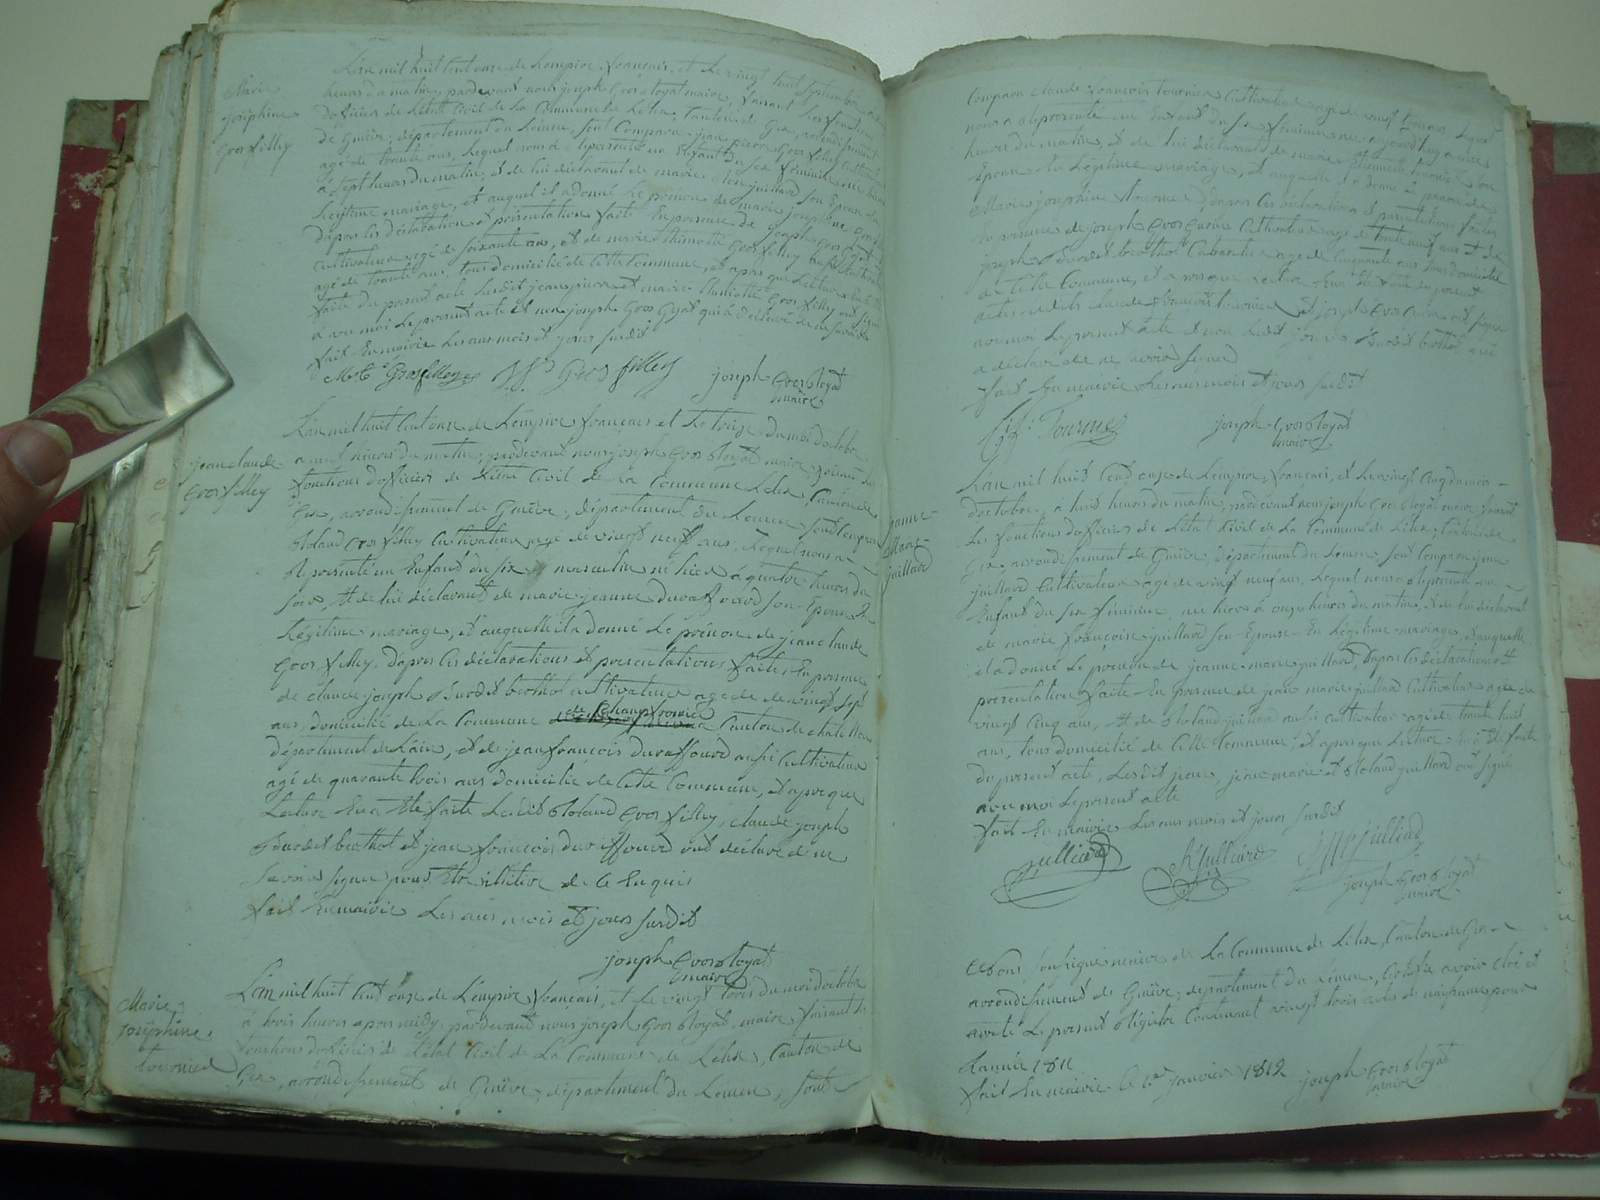 Marie
josephine
Gros filley
L'an mil huit cent onze de L'empire français, et le vingt huit septembre
heures du matin, pardevant nous joseph Grosbloyat maire, faisant les fonctions
d'officier de L'état Civil de La Commune de Lélex, Canton de Gex, arrondissement
de Genève, département du Léman, sont Comparu jean pierre Gros filley Cultivateur
agé de trente ans, Lequel nous a représenté un Enfant du sex féminin
à sept heures du matin, et de lui déclarant de marie juillard son Epouse En
Légitime mariage, et auquel il a donné le prénom de marie josephine Gros filley
d'après les déclaration et présentation faite En présence de joseph Gros
Cultivateur agé de soixante ans, et de marie thimothé Gros filley aussi Cultivateur
agé de trente ans, tous domicilié de Cette Commune, et après que Lecture En a Eté
faite du présent acte Lesdit jean pierre et marie thimothé Gros filley ont signé
avec moi Le présent acte et non joseph Gros qui a déclaré de ne savoir
fait En mairie Les ans mois et jours susdit
Gros filley Gros filley joseph Grosbloyat
maire
jean claude
Gros filley
L'an mil huit Cent onze de L'empire français et Le treize du moi d'octobre
a neuf heures du matin, pardevant nous joseph Grosbloyat maire faisant les
fonctions d'officier de L'état Civil de La Commune Lélex, Canton de
Gex, arrondissement de Genève, département du Léman sont Comparu
Roland Gros filley Cultivateur agé de vingt neuf ans, Lequel nous a
représenté un Enfant du sex masculin né hier à quatre heures du
soir, et de lui déclarant de marie jeanne Duraffourd son Epouse En
Légitime mariage, et auquel il a donné Le prénom de jean claude
Gros filley, d'après Les déclarations et présentations faite, En présence
de claude joseph Burdet berthot Cultivateur agé de vingt sept
ans, domicilié de La Commune de Champfromier Canton de chatillon
département de L'ain, et de jean françois Duraffourd aussi Cultivateur
agé de quarante trois ans domicilié de Cette Commune, et après que
Lecture En a Eté faite Ledit Roland Gros filley, claude joseph
Burdet berthot et jean françois Duraffourd ont déclaré de ne
savoir signé pour Etre illitéré de Ce Enquis
fait En mairie Les ans mois et jours susdit
joseph Grosbloyat
maire
Marie
Josephine
tournier
L'an mil huit Cent onze de L'empire français, et Le vingt trois du moi d'octobre
à trois heures apres midy, pardevant nous joseph Grosbloyat, maire faisant les
fonctions d'officier de L'état Civil de La Commune de Lélex, Canton de
Gex, arrondissement de Genève, département du Léman, sont
Comparu claude françois tournier Cultivateur agé de vingt
nous a représenté un Enfant du sex féminin né aujourd'huy a
heures du matin, et de lui déclarant de marie
Epouse En Légitime mariage, et auquel il a donné Le prénom de
Marie josephine tournier d'après les déclarations et présentations faites
En présence de joseph Gros Cultivateur agé de trente neuf ans et de
joseph Burdet berthot Cabaretier agé de Cinquante ans tous domicilié
de Cette Commune, et après que Lecture En a Eté faite du présent
acte Lesdits claude françois tournier et joseph Gros ont signé
avec moi Le présent acte et non Ledit joseph Burdet berthot qui
a déclaré de ne savoir signé
fait En mairie Les ans mois et jours susdit
Tournier joseph Grosbloyat
maire
jeanne
Marie
juillard
L'an mil huit Cent onze de L'empire français, et Le vingt Cinq du mois
d'octobre, a huit heures du matin, pardevant nous joseph Grosbloyat maire faisant
Les fonctions d'officier de L'état Civil de La Commune de Lélex, Canton de
Gex, arrondissement de Genève, département du Léman, sont Comparu jean
juillard Cultivateur agé de vingt neuf ans, Lequel nous a représenté un
Enfant du sex féminin né hier à onze heures du matin, et de lui déclarant
de marie françoise juillard son Epouse En Légitime mariage, et auquelle
il a donné Le prénom de jeanne marie juillard, d'après les déclaration et
présentation faite En présence de jean marie juillard Cultivateur agé de
vingt Cinq ans, et de Roland juillard aussi Cultivateur agé de trente huit
ans, tous domicilié de Cette Commune, et après que Lecture En a Eté faite
du présent acte, Lesdit jean, jean marie et Roland juillard ont signé
avec moi Le présent acte
fait En mairie Les ans mois et jours susdit
julliard R julliard J M julliard
joseph Grosbloyat
maire
Nous soussigné maire de La Commune de Lélex, Canton de Gex
arrondissement de Genève, département du Léman, Certifie avoir clos et
arreté Le présent Régistre Contenant vingt trois actes de naissance pour
L'année 1811
fait En mairie le 1er janvier 1812 joseph Grosbloyat
maire